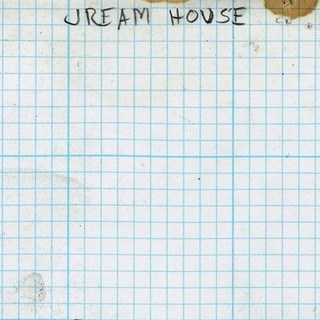 JREAM HOUSE